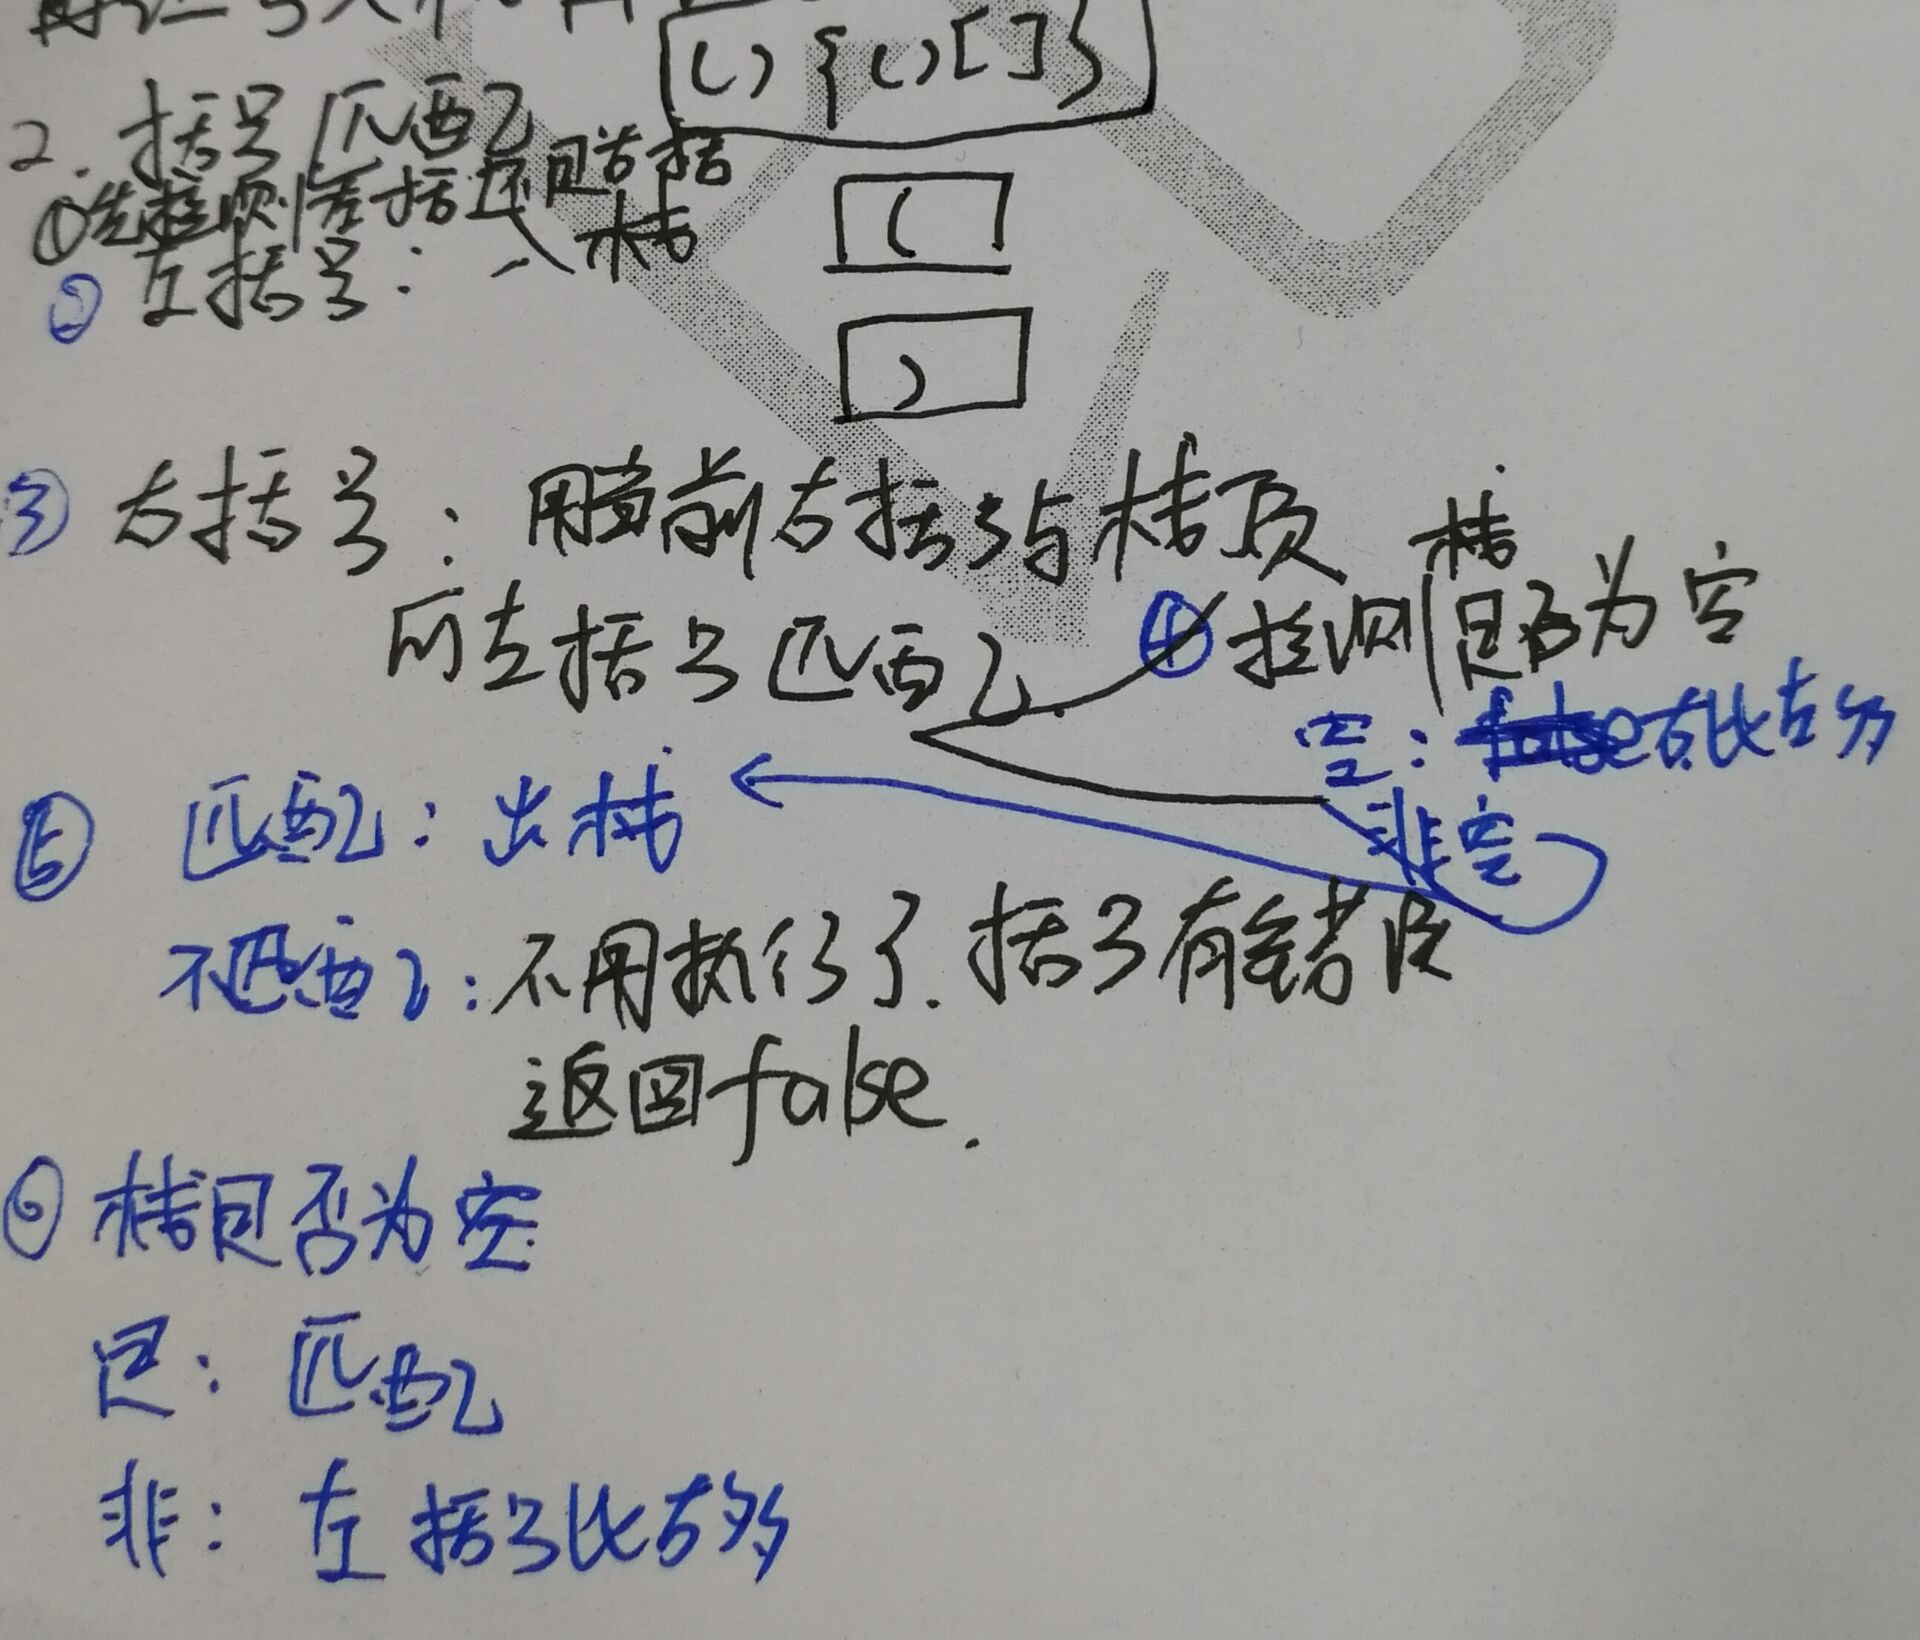 (){()[]}
2. 括号匹配
①先检测左括还是右括
② 左括号：入栈
(
)
③ 右括号：用当前右括号与栈顶
的左括号匹配.
④检测栈是否为空
空：右比左多
非空
⑤ 匹配：出栈
不匹配：不用执行了.括号有错误
返回false.
⑥ 栈是否为空
是：匹配
非：左括号比右多